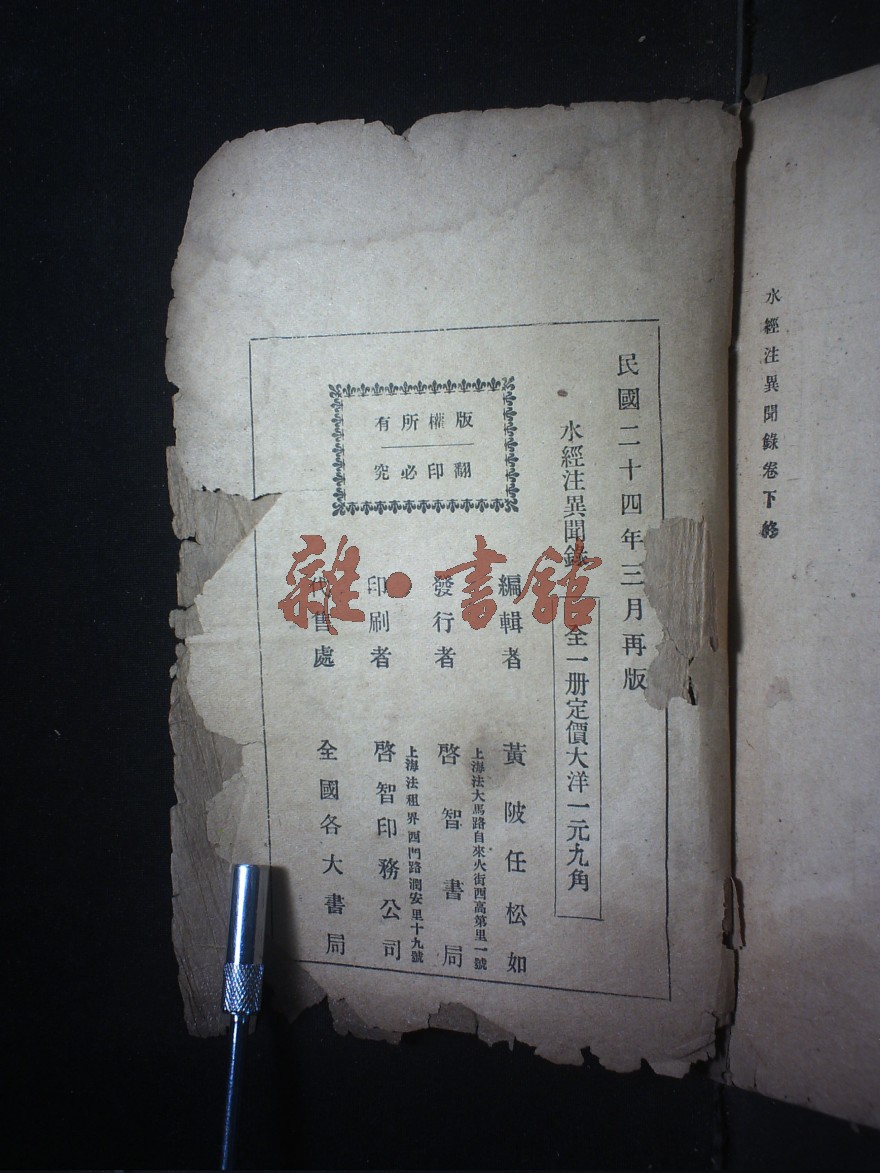 水經注異聞錄卷下終
民國二十四年三月再版
水經注異聞錄
全一册定價大洋一元九角
版權所有
翻印必究
編輯者 黃陂任松如
上海法大馬路自來火街西高第里一號
發行者 啓智書局
上海法租界西門路潤安里十九號
印刷者 啓智印務公司
代售處 全國各大書局
雜·書館